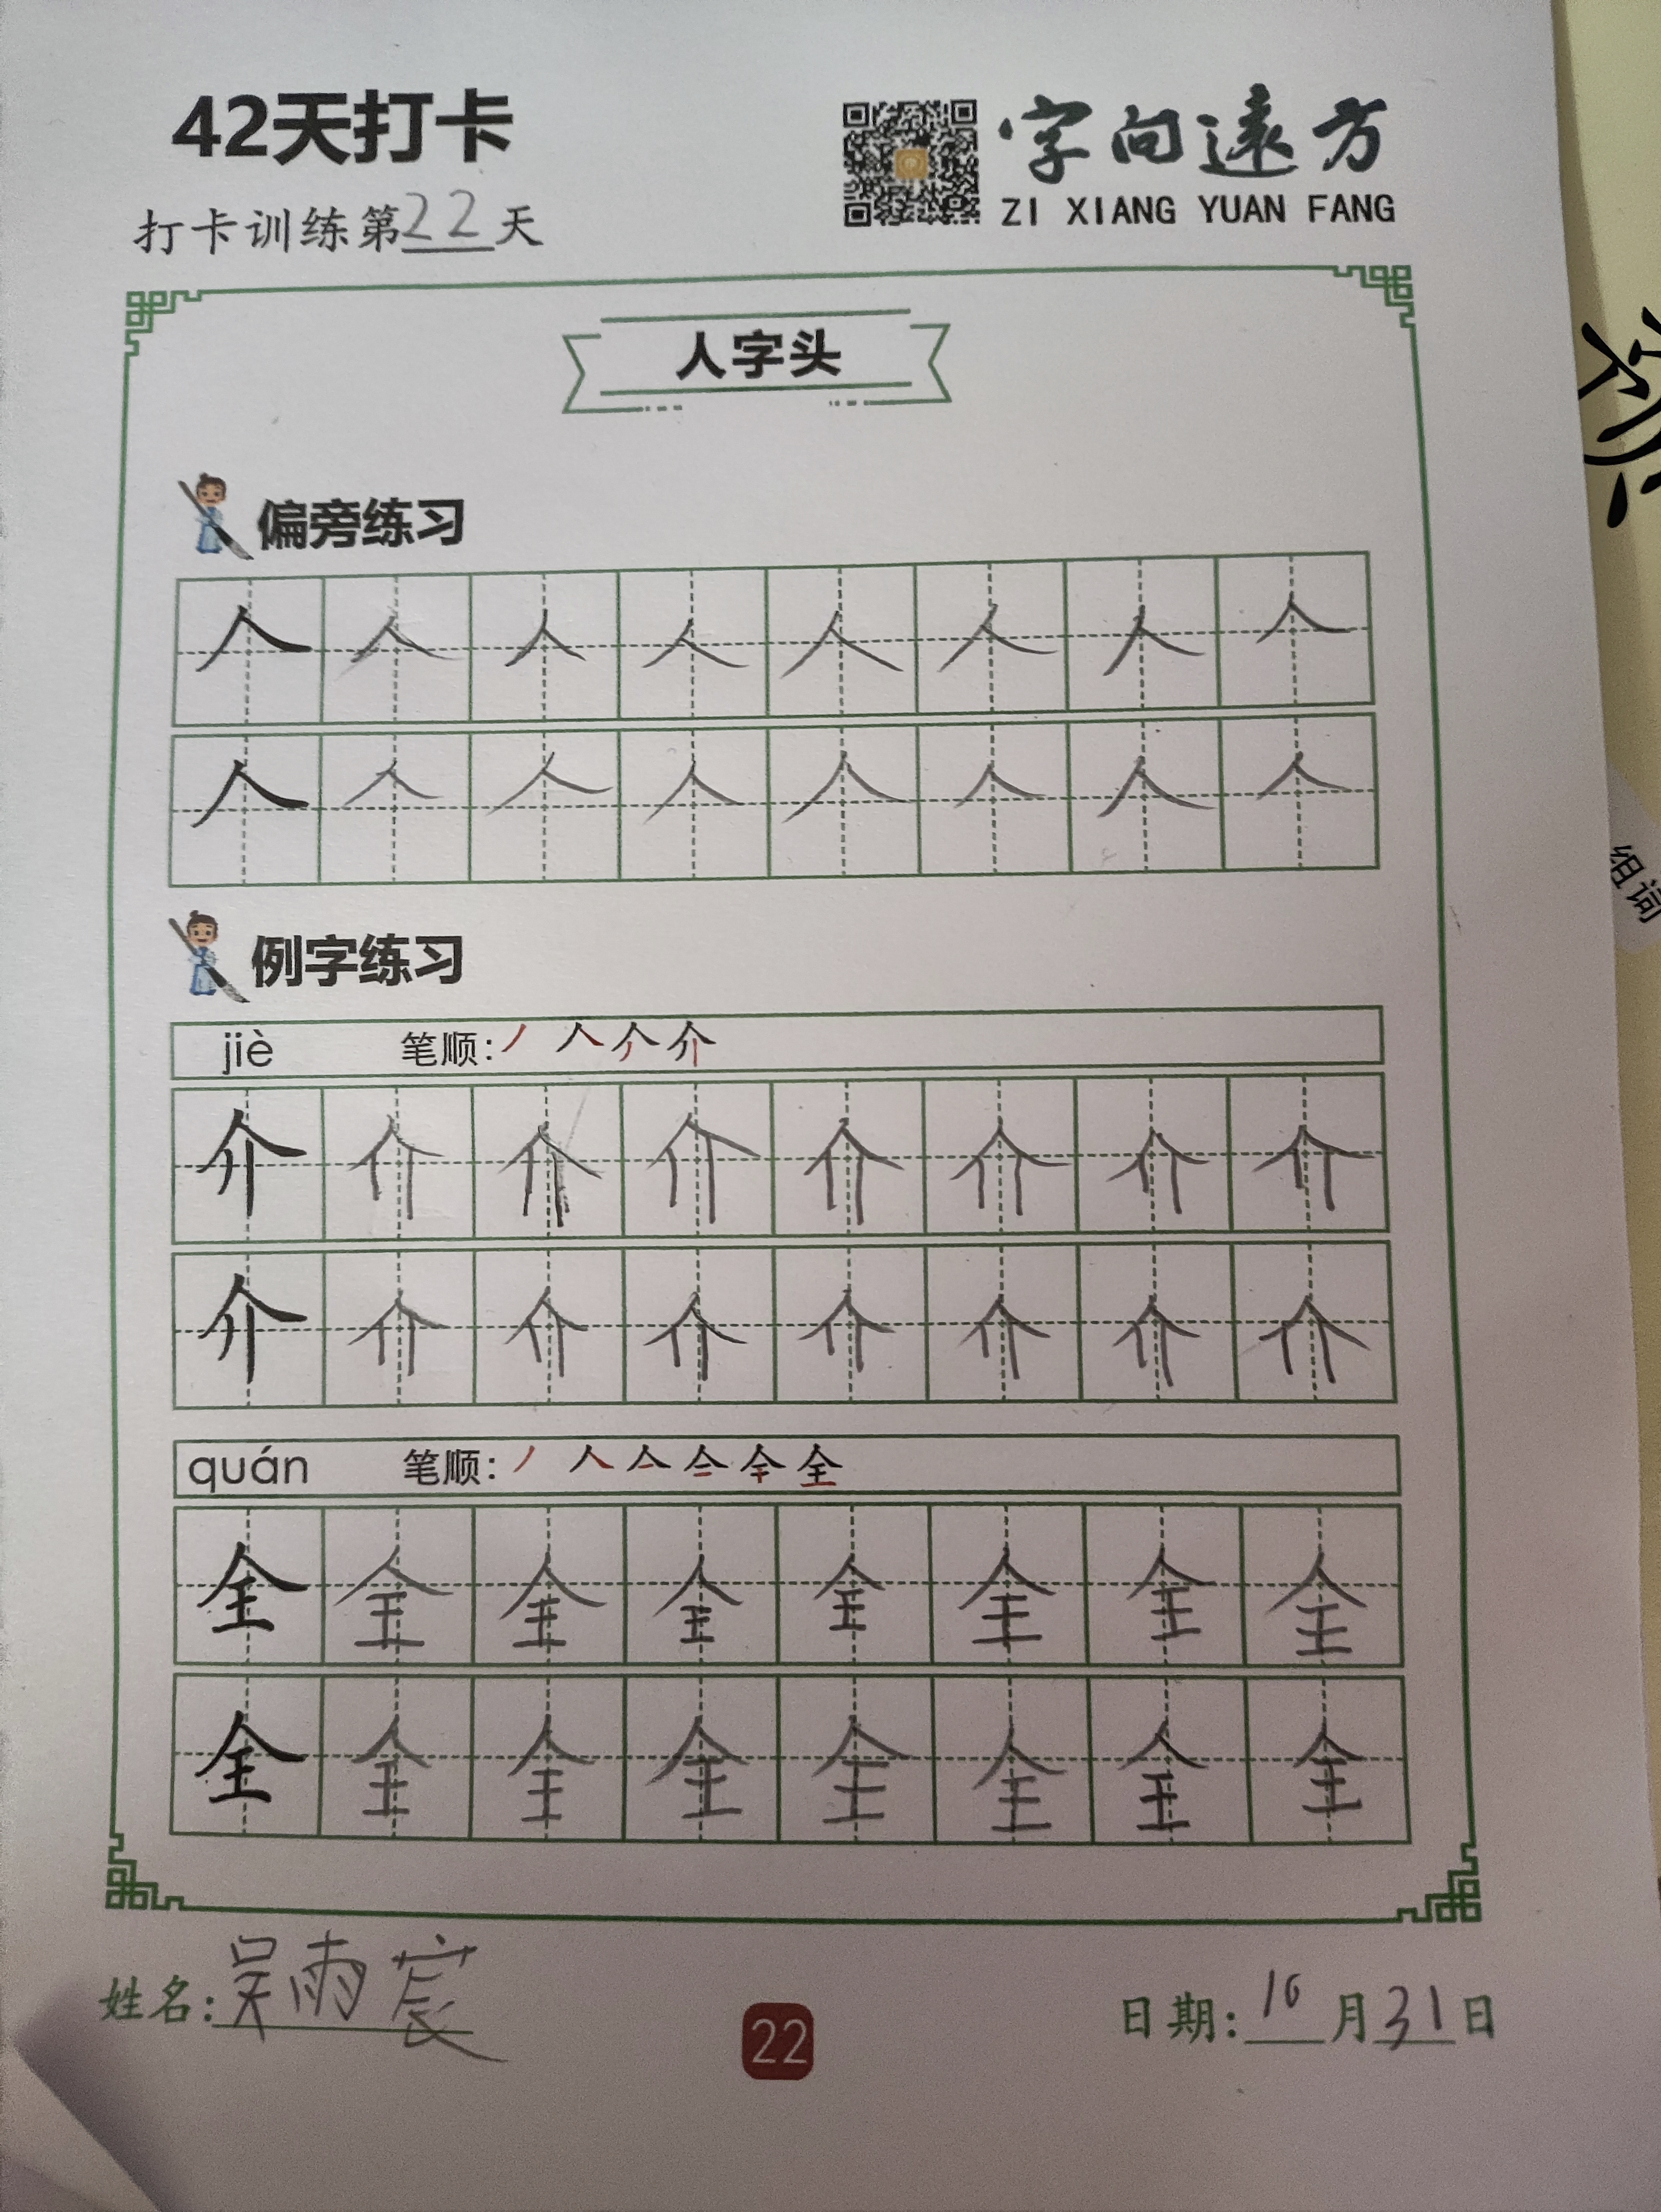 42天打卡
字向遠方
ZI XIANG YUAN FANG
打卡训练第22天
人字头
偏旁练习
人 人 人 人 人 人 人 人
人 人 人 人 人 人 人 人
例字练习
jiè 笔顺:
介 介 介 介 介 介 介 介
介 介 介 介 介 介 介 介
quán 笔顺:
全 全 全 全 全 全 全 全
全 全 全 全 全 全 全 全
姓名:吴雨宸
22
日期:10月31日
组词